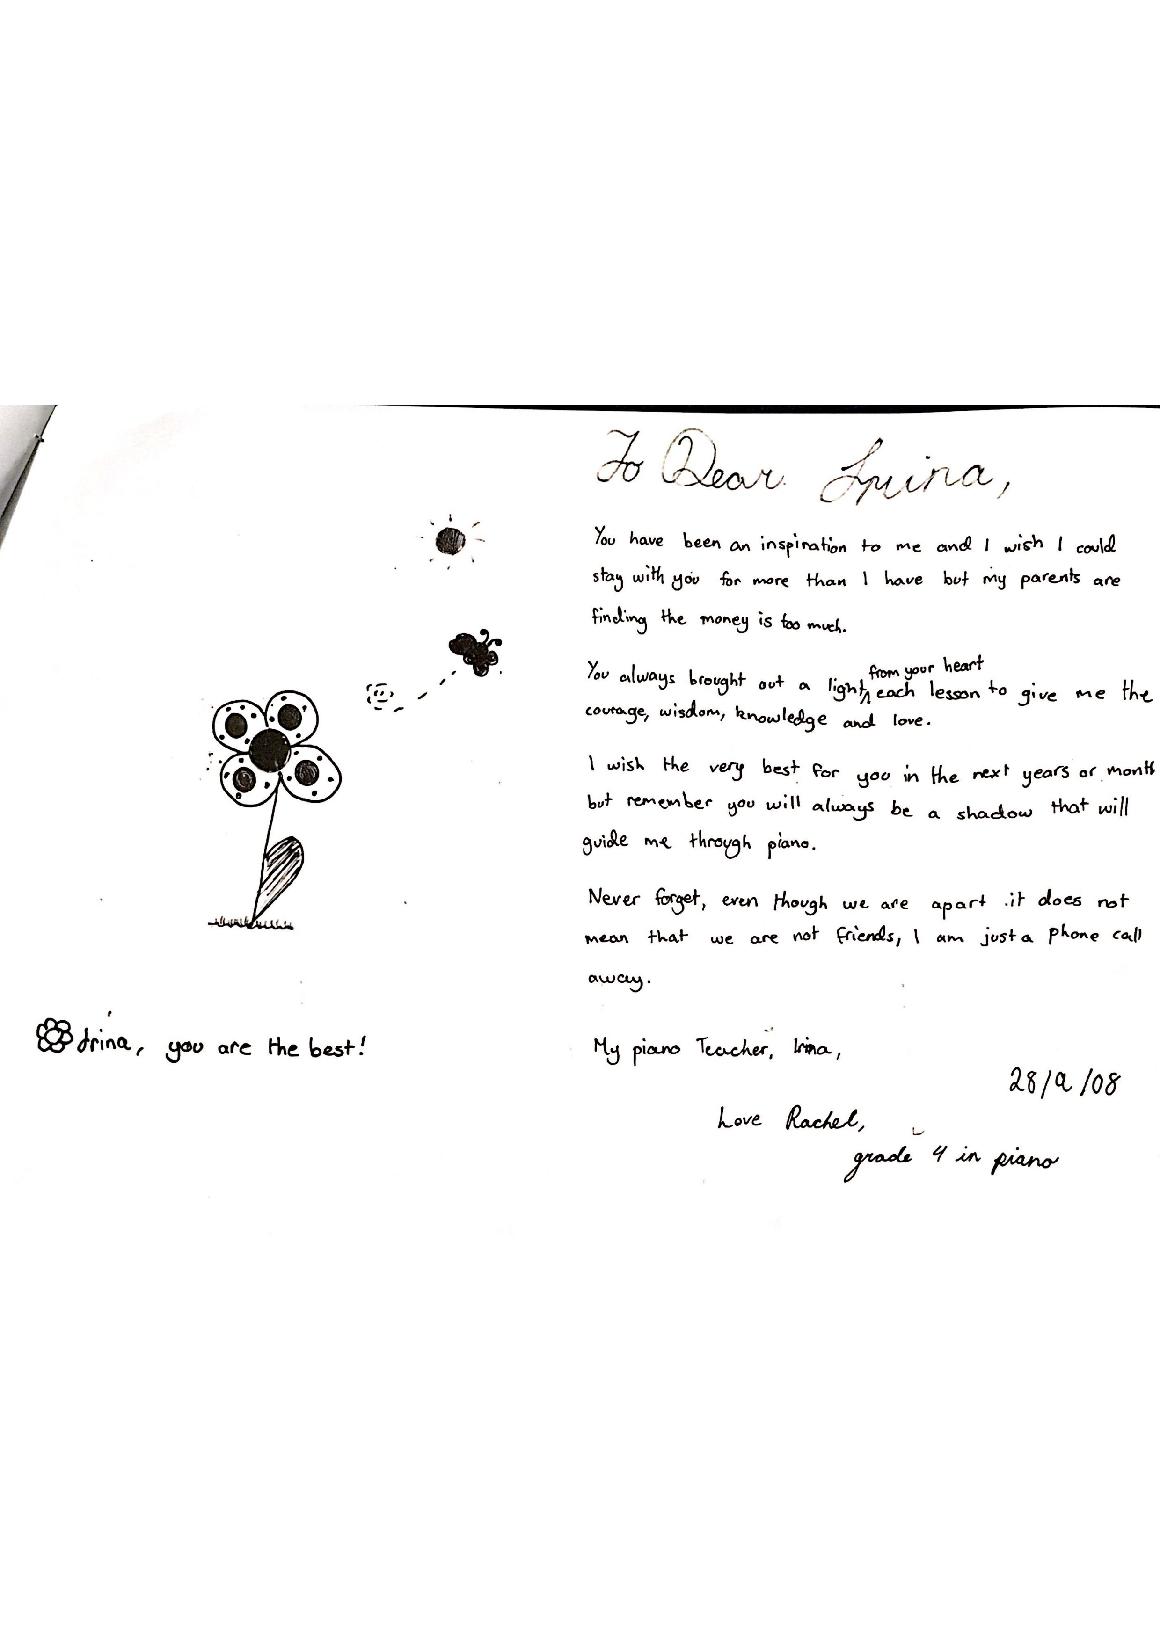 To Dear Irina,
You have been an inspiration to me and I wish I could
stay with you for more than I have but my parents are
finding the money is too much.
from your heart
You always brought out a light, each lesson to give me the
courage, wisdom, knowledge and love.
I wish the very best for you in the next years or month
but remember you will always be a shadow that will
guide me through piano.
Never forget, even though we are apart it does not
mean that we are not friends, I am just a phone call
away.
Irina, you are the best!
My piano Teacher, Irina,
28/9/08
Love Rachel,
grade 4 in piano